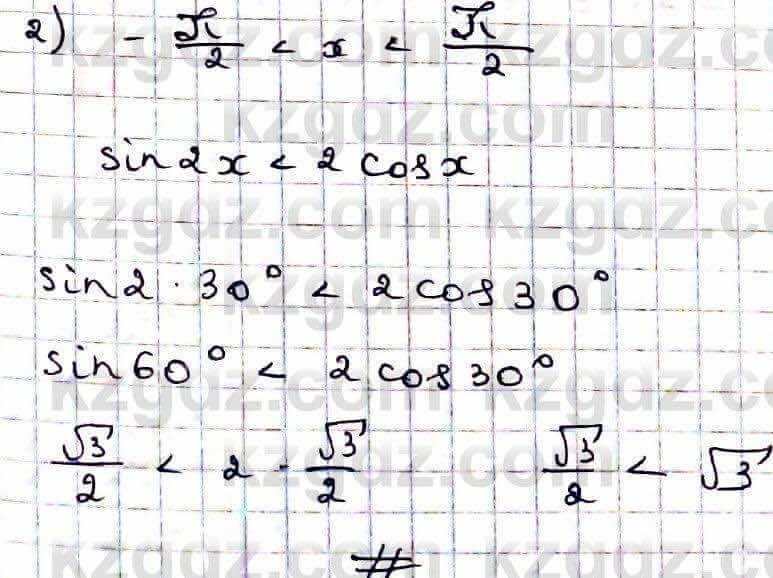 2) - π/2 < x < π/2
sin2x < 2 cosx
sin2 · 30° < 2 cos 30°
sin60° < 2 cos 30°
√3/2 < 2 · √3/2 √3/2 < √3
#
kzgdz.com